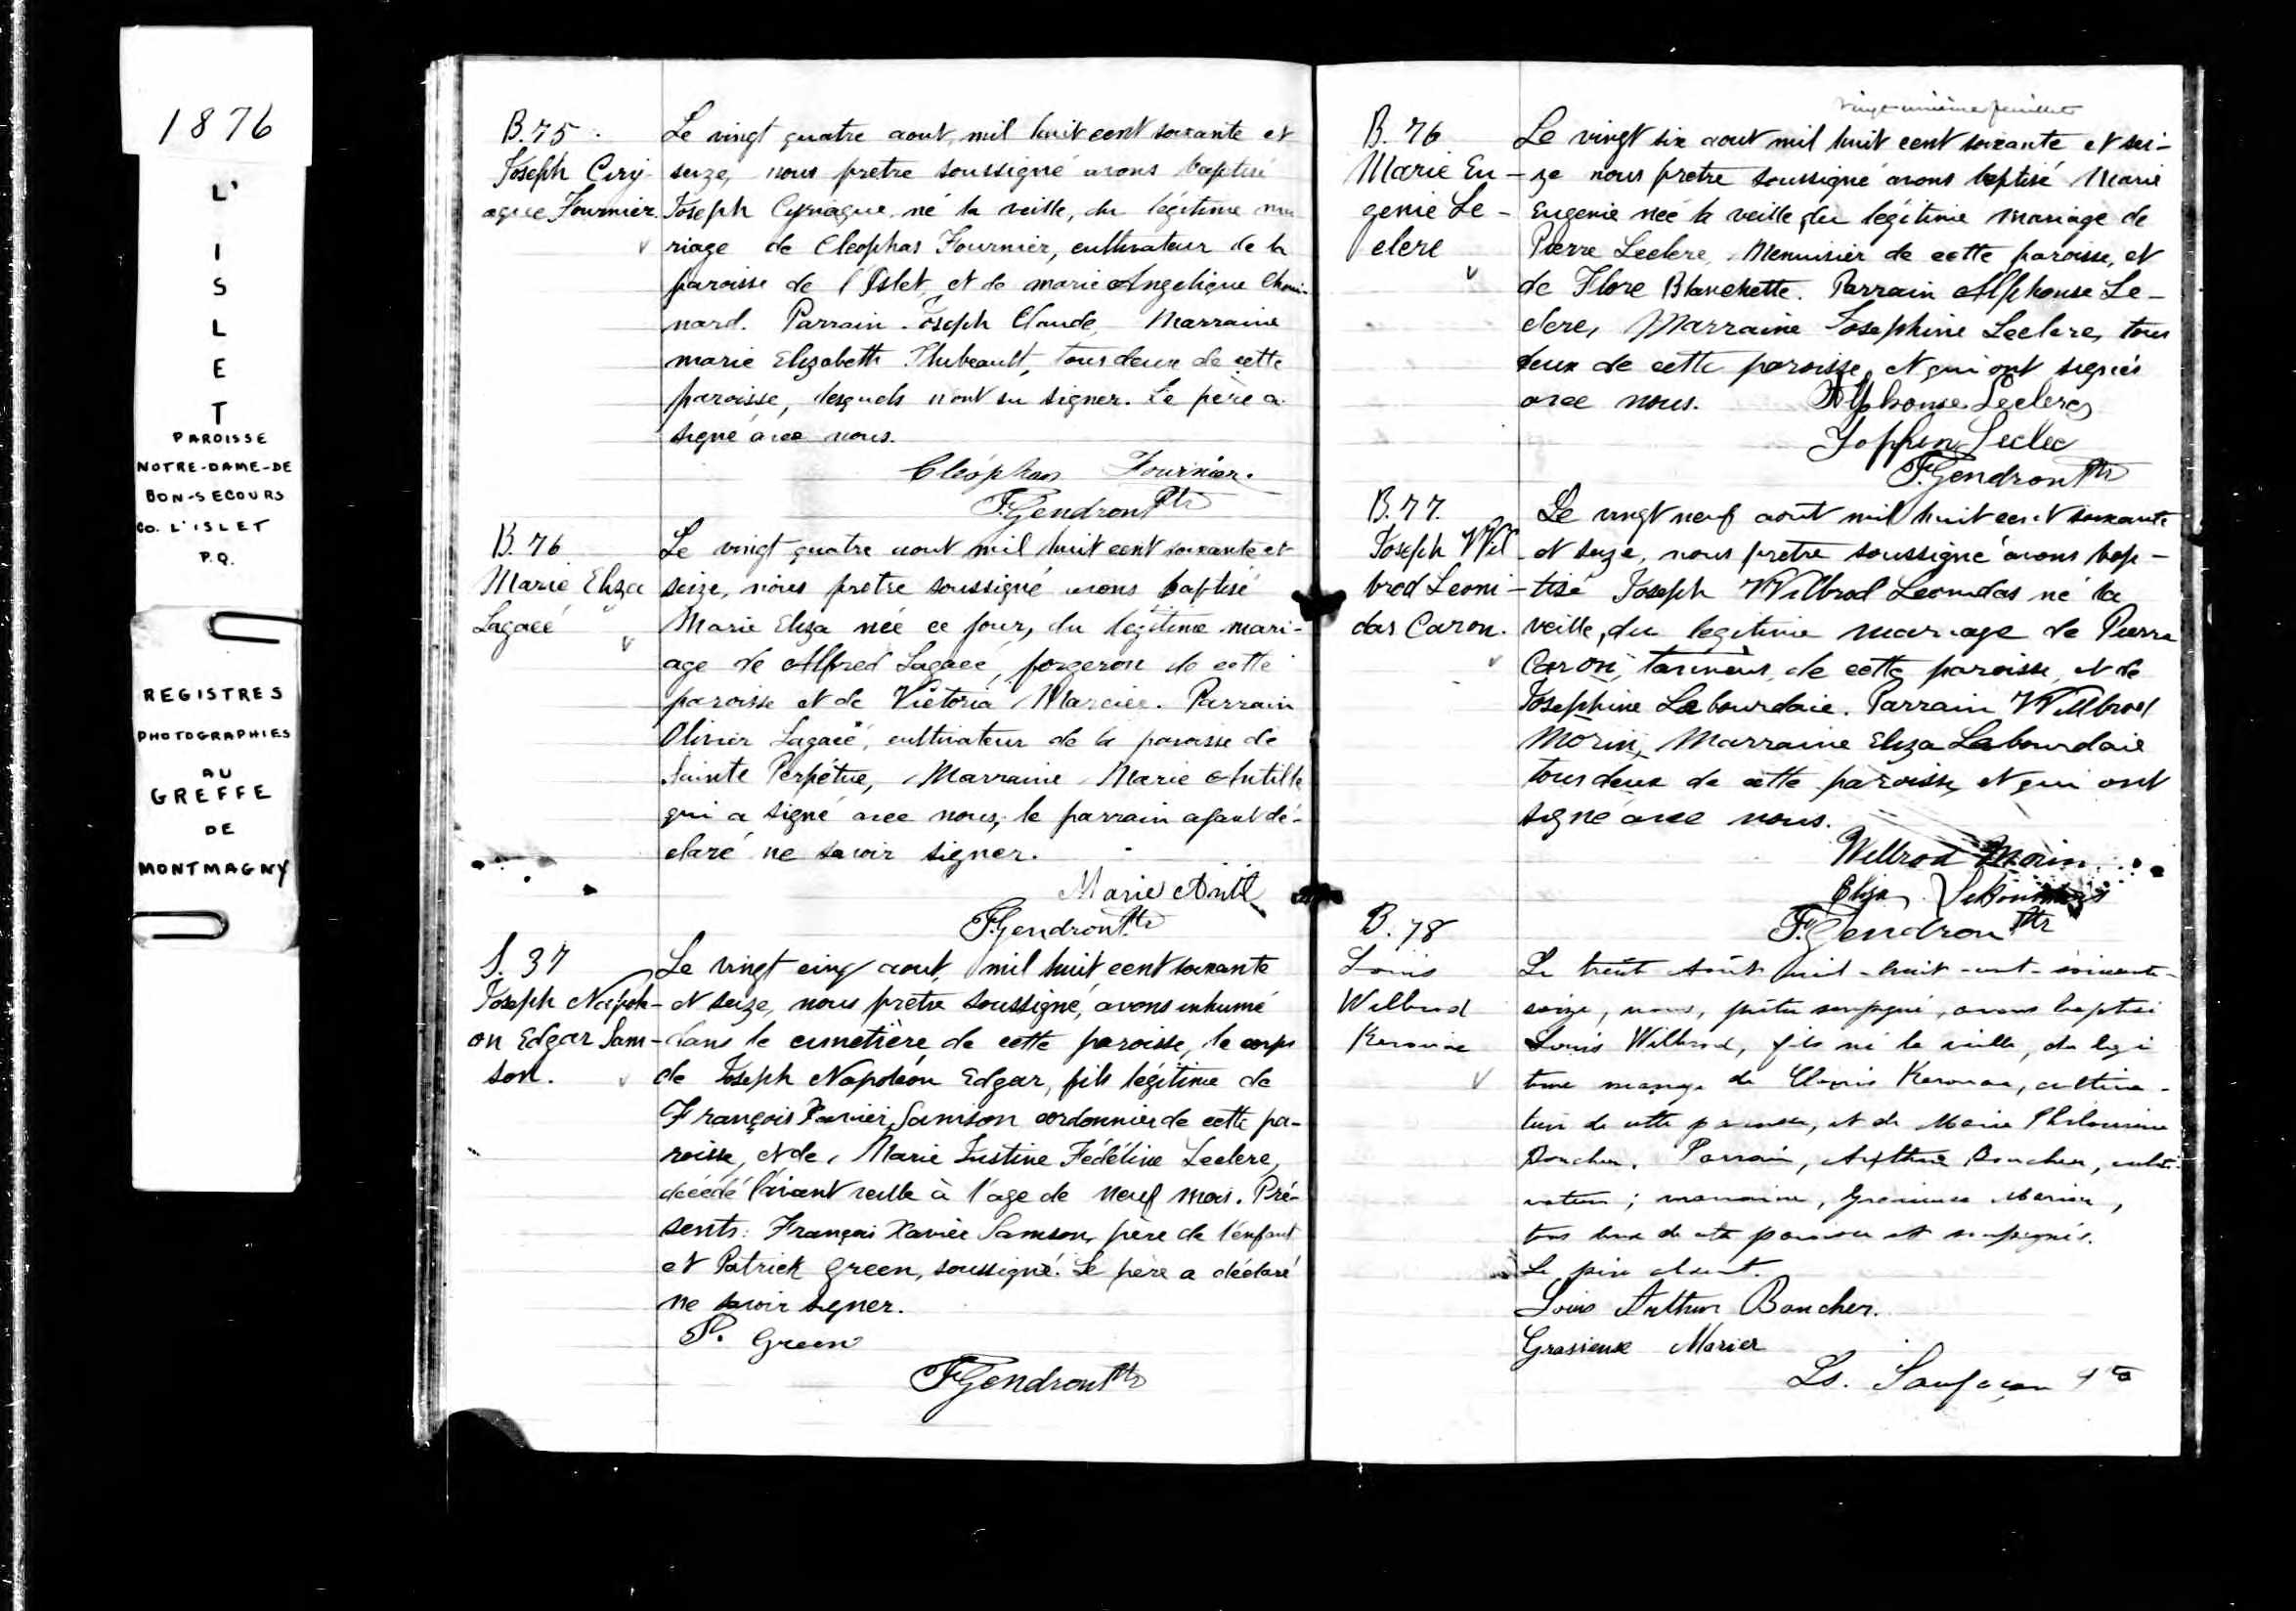 1876
L'
I
S
L
E
T
PAROISSE
NOTRE-DAME-DE
BON-SECOURS
CO. L'ISLET
P.Q.
REGISTRES
PHOTOGRAPHIES
AU
GREFFE
DE
MONTMAGNY
B. 75.
Joseph Ciry-
aque Fournier
Le vingt quatre aout, mil huit cent soixante et
seize, nous pretre soussigné avons baptisé
Joseph Cyriaque, né la veille, du légitime ma
riage de Cleophas Fournier, cultivateur de la
paroisse de l'Islet, et de marie Angelique Choui-
nard. Parrain Joseph Claude, Marraine
marie Elizabeth Thibeault, tous deux de cette
paroisse, lesquels n'ont su signer. Le père a
signé avec nous.
Cléophas Fournier.
F. Gendron Ptr
B. 76
Marie Eliza
Lagacé
Le vingt quatre aout mil huit cent soixante et
seize, nous pretre soussigné avons baptisé
Marie Eliza née ce jour, du légitime mari-
age de Alfred Lagacé, forgeron de cette
paroisse et de Victoria Mercier. Parrain
Olivier Lagacé, cultivateur de la paroisse de
Sainte Perpétue, Marraine Marie Antille
qui a signé avec nous, le parrain ayant dé-
claré ne savoir signer.
Marie Antil
F. Gendron Ptr
S. 37
Joseph Napolé-
on Edgar Sam-
son.
Le vingt cinq aout, mil huit cent soixante
et seize, nous pretre soussigné, avons inhumé
dans le cimetière de cette paroisse, le corps
de Joseph Napoléon Edgar, fils légitime de
François Xavier Samson cordonnier de cette pa-
roisse, et de Marie Justine Fédéline Leclerc,
décédé l'avant veille à l'age de neuf mois. Pré-
sents: François Xavier Samson, père de l'enfant
et Patrick Green, soussigné. Le père a déclaré
ne savoir signer.
P. Green
F. Gendron Ptr
vingt-unième feuillet
B. 76
Marie Eu-
genie Le-
clerc
Le vingt six aout mil huit cent soixante et sei-
ze nous pretre soussigné avons baptisé Marie
Eugenie née la veille, du légitime mariage de
Pierre Leclerc, Menuisier de cette paroisse, et
de Flore Blanchette. Parrain Alphonse Le-
clerc, Marraine Josephine Leclerc, tous
deux de cette paroisse, et qui ont signés
avec nous.
Alphonse Leclerc
Leclec
F. Gendron Ptr
B. 77.
Joseph Wil
brod Leoni-
das Caron.
Le vingt neuf aout mil huit cent soixante
et seize, nous pretre soussigné avons bap-
tisé Joseph Wilbrod Leonidas né la
veille, du legitime mariage de Pierre
Caron, tanneur, de cette paroisse, et de
Josephine Lebourdaie. Parrain Willbrod
Morin, Marraine Eliza Lebourdaie
tous deux de cette paroisse, et qui ont
signé avec nous.
Willrod Morin
Eliza
F. Gendron Ptr
B. 78
Louis
Wilbrod
Kerouac
Le trente Août mil-huit-cent-soixante-
seize, nous, prêtre soussigné, avons baptisé
Louis Wilbrod, fils né la veille, du légi
time mariage de Clovis Kerouac, cultiva-
teur de cette paroisse, et de Marie Philomène
Boucher. Parrain, Arthur Boucher, culti-
vateur; marraine, Gracieuse Marier,
tous deux de cette paroisse et soussignés.
Le père absent.
Louis Arthur Boucher.
Grasieuse Marier
Ls. Sanfaçon Ptre